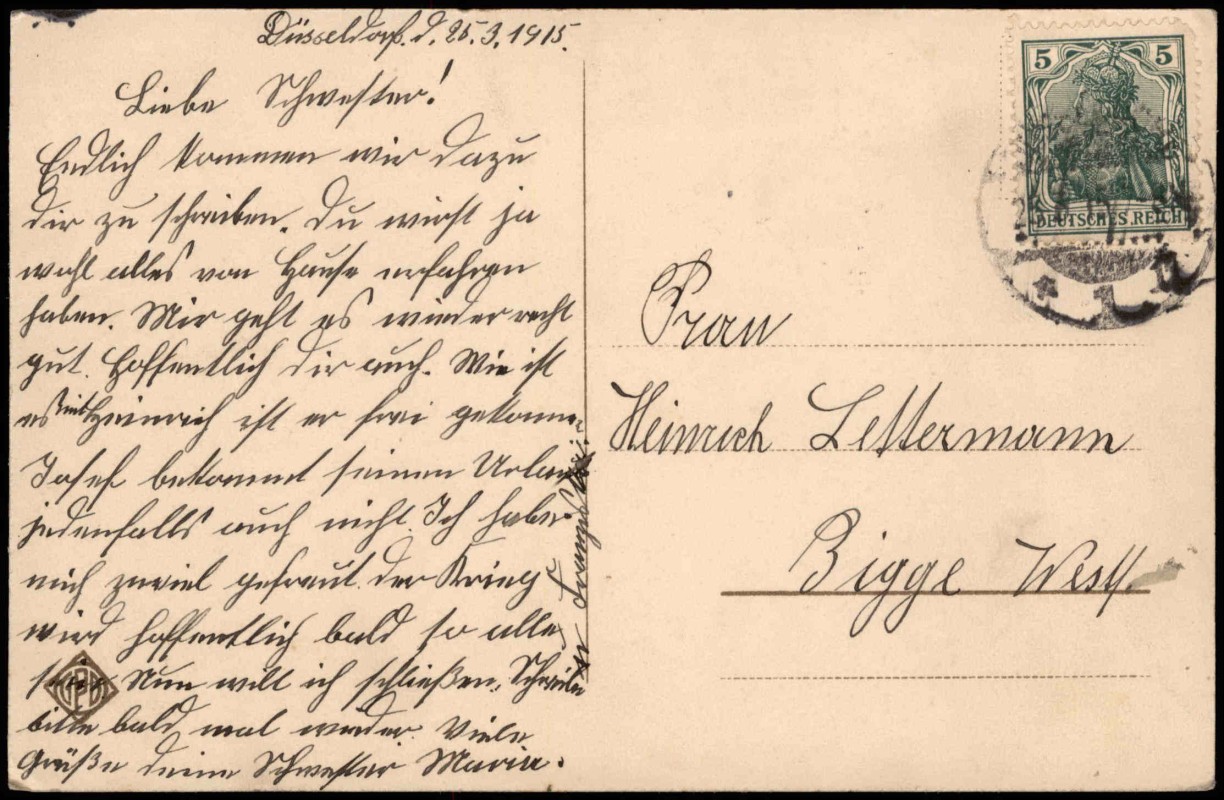 Düsseldorf. d. 25.3.1915.
Liebe Schwester!
Endlich kommen wir dazu
dir zu schreiben. Du wirst ja
wohl alles von Hause erfahren
haben. Mir geht es wieder recht
gut. Hoffentlich dir auch. Wie ist
es mit Heinrich ist er frei gekommen
Josef bekommt seinen Urlaub
jedenfalls auch nicht. Ich habe
mich zuviel gefreut. der Krieg
wird hoffentlich bald so alle
sein. Nun will ich schließen. Schreibe
bitte bald mal wieder. Viele
Grüße deine Schwester Maria.
5 5
DEUTSCHES REICH
Frau
Heinrich Lettermann
Bigge Westf.